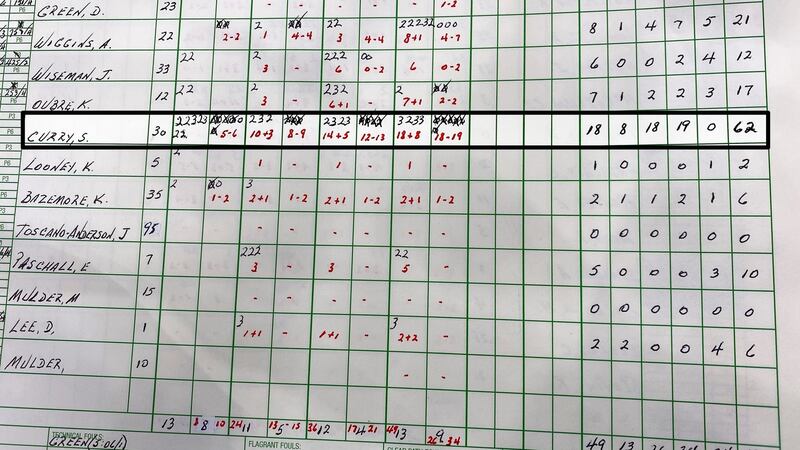 GREEN, D. 23 1-2
WIGGINS, A. 22 2-2 2 1 4-4 22 3 4-4 22232 8+1 000 4-7 8 1 4 7 5 21
WISEMAN, J. 33 22 2 3 - 222 6 00 0-2 6 0-2 6 0 0 2 4 12
OUBRE, K. 12 22 2 3 - 232 6+1 - 2 7+1 2-2 7 1 2 2 3 17
CURRY, S. 30 22323 22 5-6 232 10+3 8-9 2323 14+5 12-13 3233 18+8 18-19 18 8 18 19 0 62
LOONEY, K. 5 2 1 - 1 - 1 - 1 0 0 0 1 2
BAZEMORE, K. 35 2 1-2 3 2+1 1-2 2+1 1-2 2+1 1-2 2 1 1 2 1 6
TOSCANO-ANDERSON, J 95 - - - - - - 0 0 0 0 0 0
PASCHALL, E 7 222 3 - 3 - 22 5 - 5 0 0 0 3 10
MULDER, M 15 - - - - - - 0 0 0 0 0 0
LEE, D. 1 3 1+1 - 1+1 - 3 2+2 - 2 2 0 0 4 6
MULDER, 10 - -
13 8 8 10 24 11 13 5-15 36 12 17 4 21 49 13 9 26 34
TECHNICAL FOULS:
GREEN (5:06/1)
FLAGRANT FOULS:
49 13